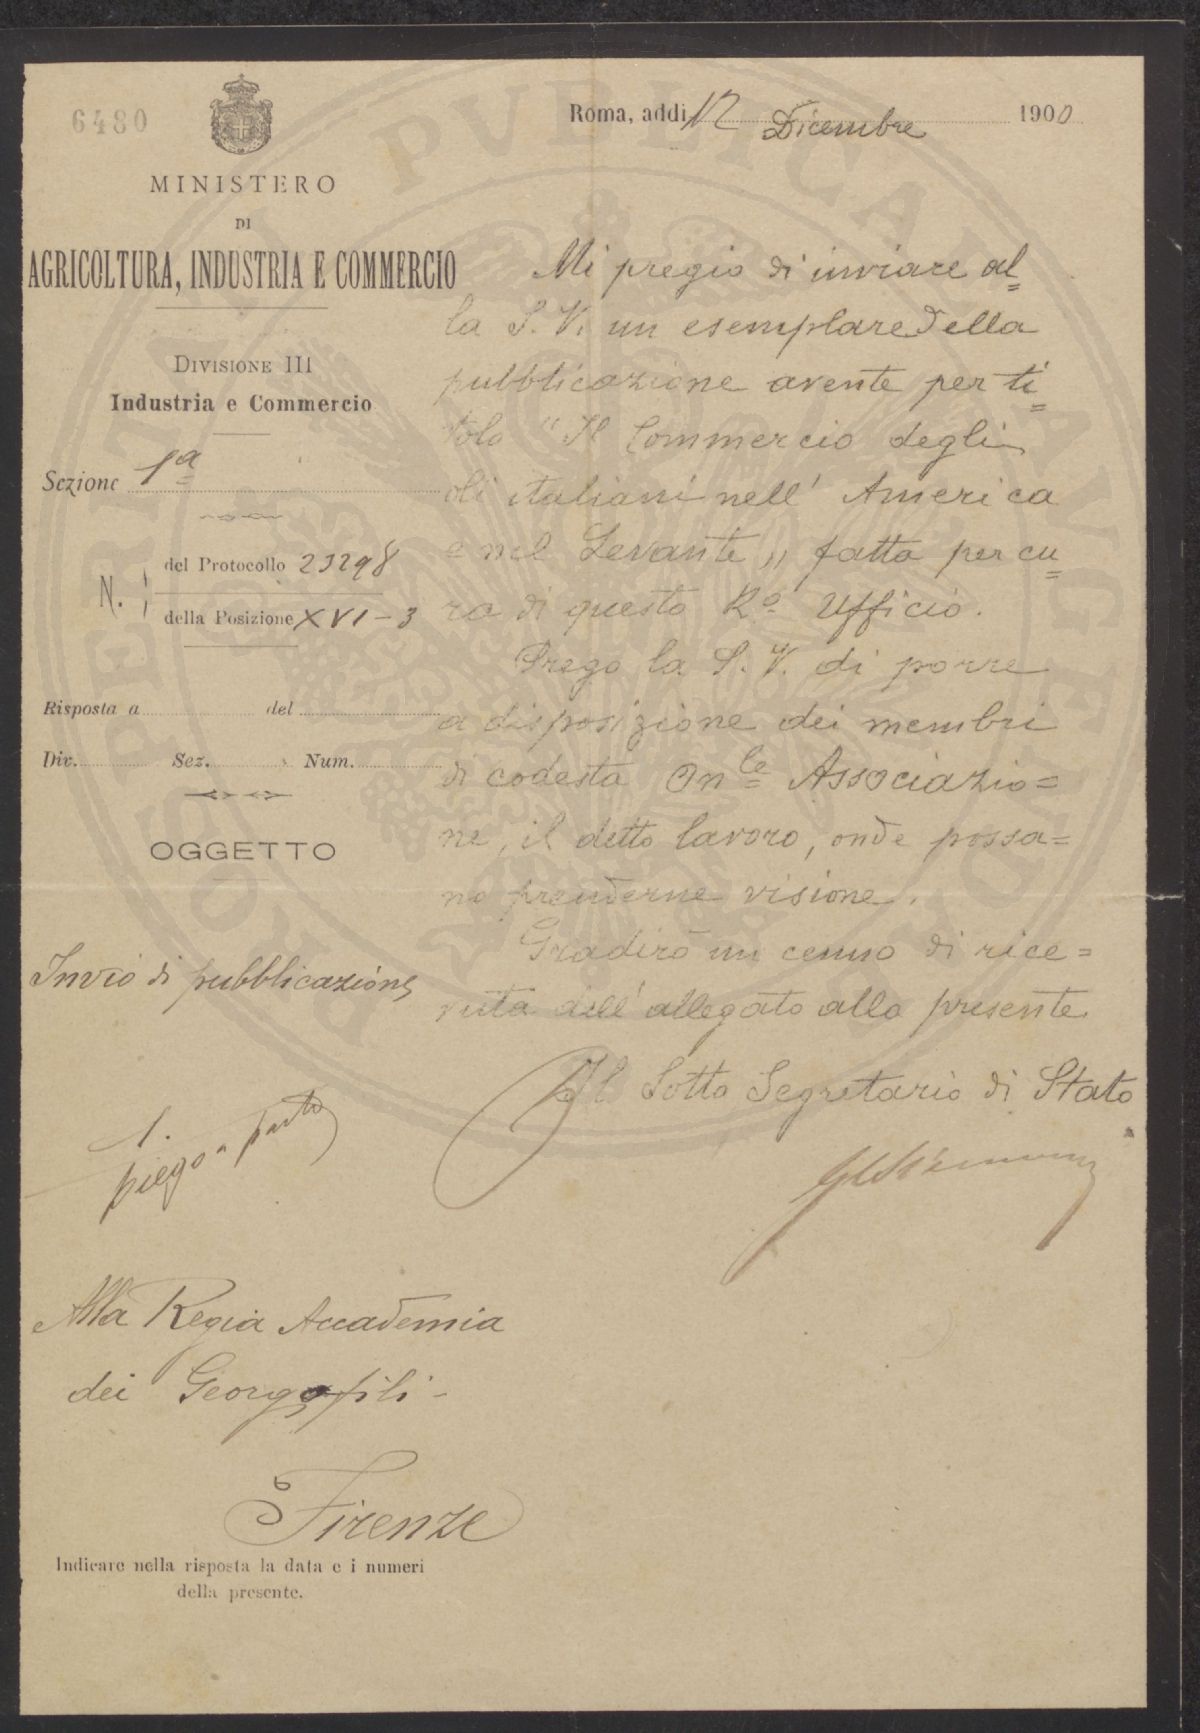 6480
Roma, addì 12 Dicembre 1900
MINISTERO
DI
AGRICOLTURA, INDUSTRIA E COMMERCIO
DIVISIONE III
Industria e Commercio
Sezione 1ª
N. del Protocollo 23298
della Posizione XVI-3
Risposta a del
Div. Sez. Num.
OGGETTO
Invio di pubblicazione
1. piego a parte
Mi pregio di inviare al=
la S. V. un esemplare della
pubblicazione avente per ti=
tolo "Il Commercio degli
oli italiani nell' America
e nel Levante" fatta per cu=
ra di questo Rº Ufficio.
Prego la S. V. di porre
a disposizione dei membri
di codesta Onle Associazio=
ne, il detto lavoro, onde possa=
no prenderne visione.
Gradirò un cenno di rice=
vuta dell' allegato alla presente
Il Sotto Segretario di Stato
Alla Regia Accademia
dei Georgofili -
Firenze
Indicare nella risposta la data e i numeri
della presente.